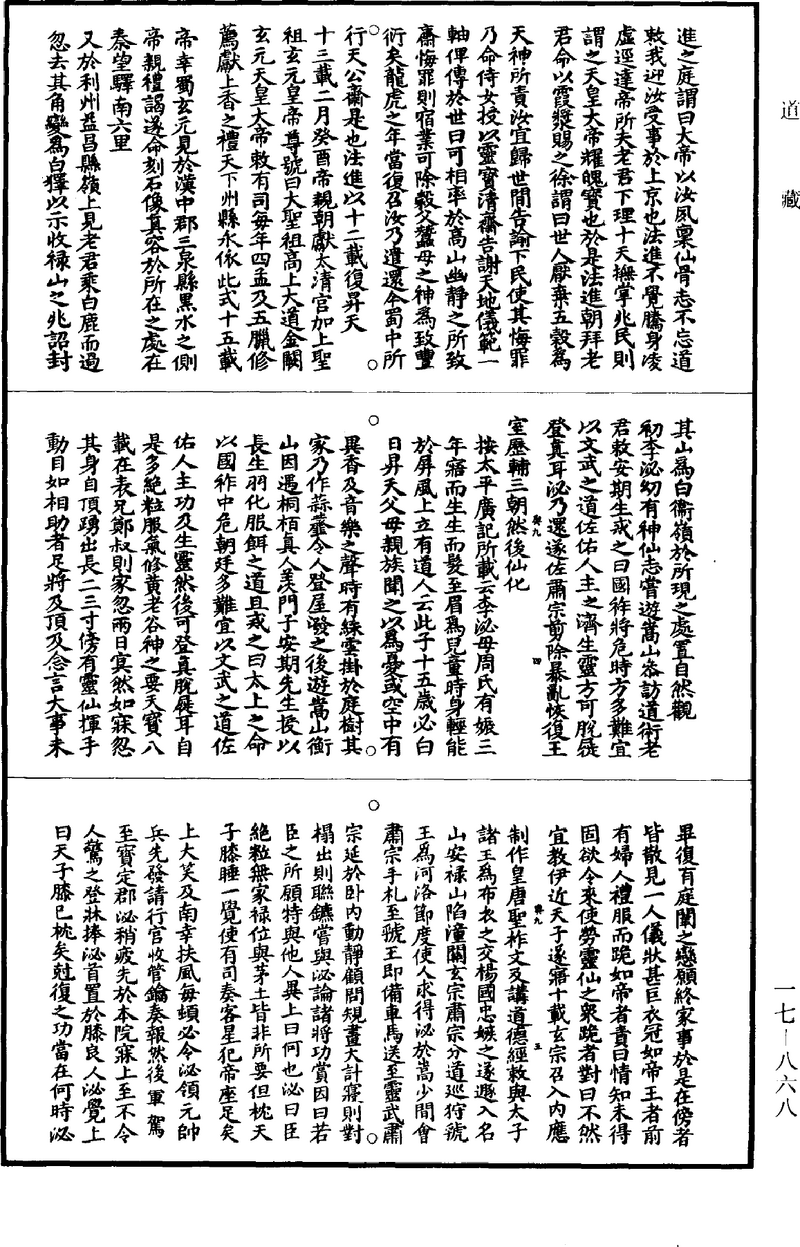 進之庭謂曰大帝以汝夙稟仙骨志不忘道
敕我迎汝受事於上京也法進不覺騰身凌
虛逕達帝所夫老君下理十天撫掌兆民則
謂之天皇大帝耀魄寶也於是法進朝拜老
君命以霞漿賜之徐謂曰世人厭棄五穀為
天神所責汝宜歸世間告諭下民使其悔罪
乃命侍女授以靈寶清齋告謝天地儀範一
軸俾傳於世曰可相率於高山幽靜之所致
齋悔罪則宿業可除穀父蠶母之神為致豐
衍矣龍虎之年當復召汝乃遣還今蜀中所
行天公齋是也法進以十二載復昇天
十三載二月癸酉帝親朝獻太清宮加上聖
祖玄元皇帝尊號曰大聖祖高上大道金闕
玄元天皇大帝敕有司每年四孟及五臘修
薦獻上香之禮天下州縣永依此式十五載
帝幸蜀玄元見於漢中郡三泉縣黑水之側
帝親禮謁遂命刻石像真容於所在之處在
泰望驛南六里
又於利州益昌縣嶺上見老君乘白鹿而過
忽去其角變為白獐以示收祿山之兆詔封
其山為白衛嶺於所現之處置自然觀
初李泌幼有神仙志嘗遊嵩山叅訪道術老
君敕安期生戒之曰國祚將危時方多難宜
以文武之道佐佑人主之濟生靈方可脫屣
登真耳泌乃還遂佐肅宗剪除暴亂恢復王
室歷輔三朝然後仙化
按太平廣記所載云李泌母周氏有娠三
年寤而生生而髮至眉為兒童時身輕能
於屏風上立有道人云此子十五歲必白
日昇天父母親族聞之以為憂或空中有
異香及音樂之聲時有綵雲掛於庭樹其
家乃作蒜虀令人登屋潑之後遊嵩山衡
山因遇桐栢真人羨門子安期先生授以
長生羽化服餌之道且戒之曰太上之命
以國祚中危朝廷多難宜以文武之道佐
佑人主功及生靈然後可登真脫屣耳自
是多絕粒服氣修黃老谷神之要天寶八
載在表兄鄭叔則家忽兩日寞然如寐忽
其身自頂踴出長二三寸傍有靈仙揮手
動目如相助者足將及頂及念言大事未
畢復有庭闈之戀願終家事於是在傍者
皆散見一人儀狀甚巨衣冠如帝王者前
有婦人禮服而跪如帝者責曰情知未得
固欲令來使勞靈仙之衆跪者對曰不然
宜教伊近天子遂寤十載玄宗召入內應
制作皇唐聖祚文及講道德經敕與太子
諸王為布衣之交楊國忠嫉之遂遯入名
山安祿山陷潼關玄宗肅宗分道巡狩號
王為河洛節度使人求得泌於嵩少間會
肅宗手札至虢王即備車馬送至靈武肅
宗延於卧內動靜顧問規畫大計寢則對
榻出則聯鑣嘗與泌論諸將功賞因曰若
臣之所願特與他人異上曰何也泌曰臣
絕粒無家祿位與茅土皆非所要但枕天
子膝睡一覺使有司奏客星犯帝座足矣
上大笑及南幸扶風每頓必令泌領元帥
兵先發請行宮收管鑰奏報然後軍駕
至寶定郡泌稍疲先於本院寐上至不令
人驚之登牀捧泌首置於膝良久泌覺上
曰天子膝已枕矣尅復之功當在何時泌
道藏
一七－八六八